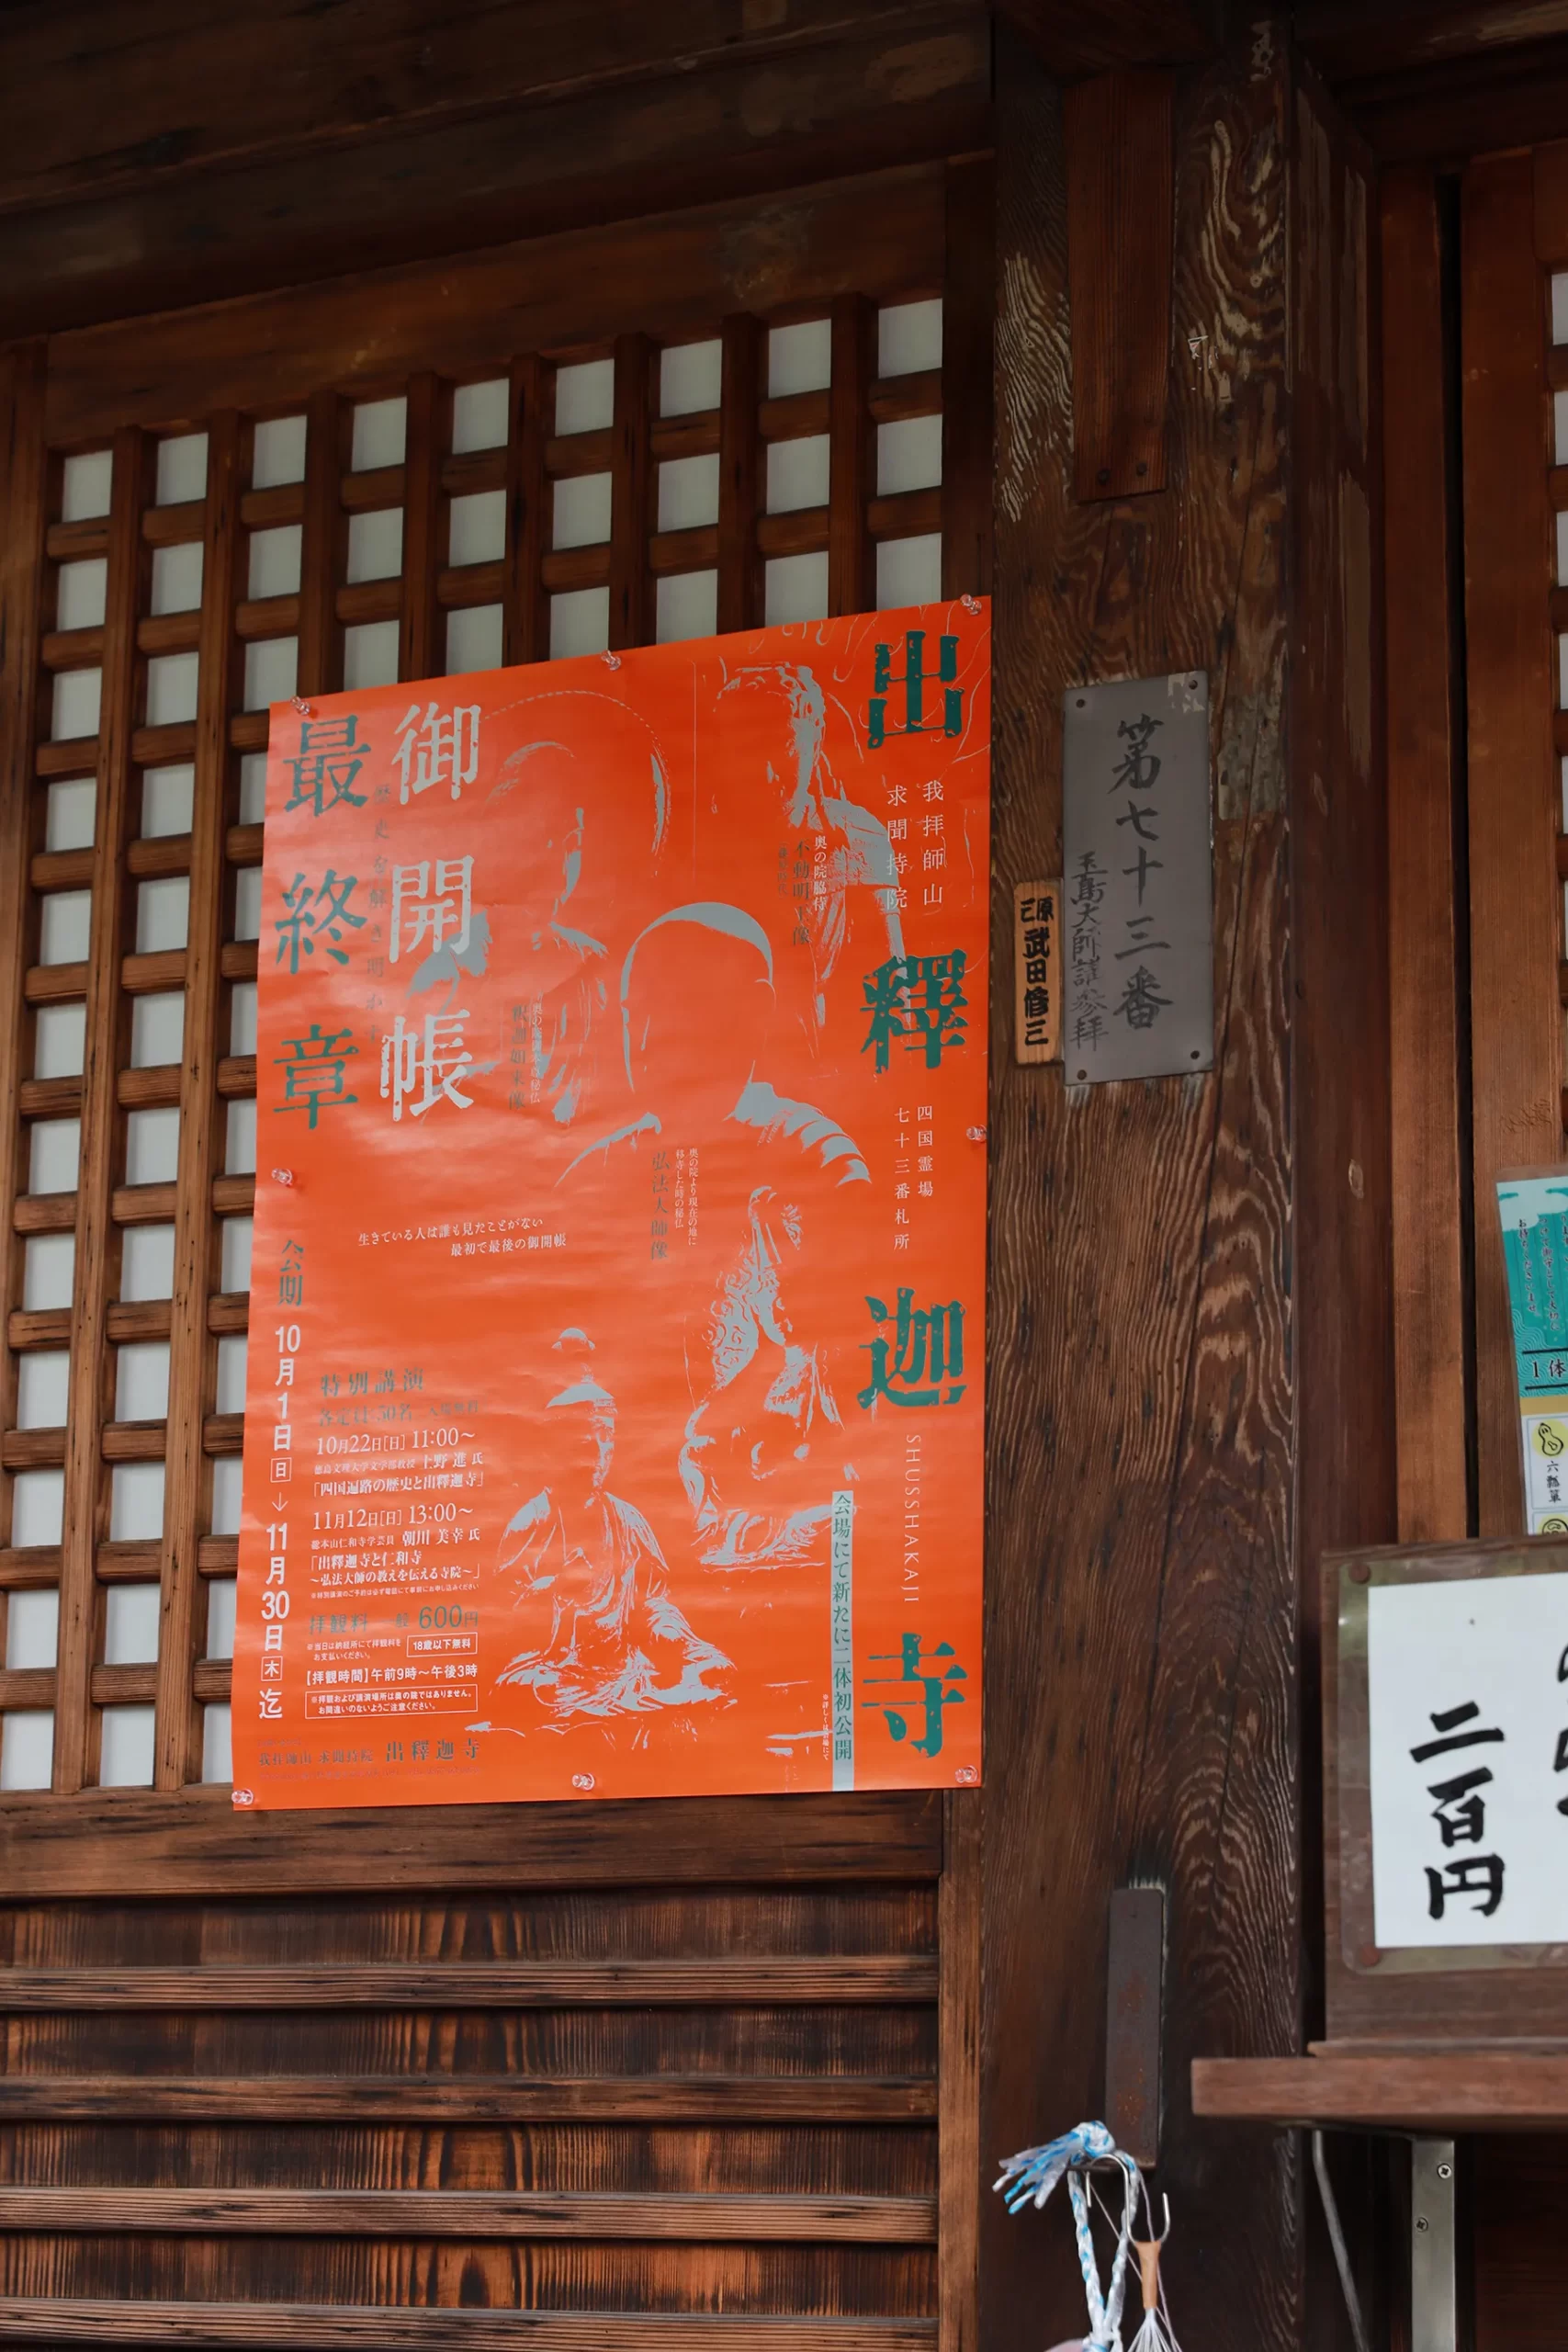 出釋迦寺
我拝師山
求聞持院
四国霊場
七十三番札所
SHUSSHAKAJI
会場にて新たに二体初公開
奥の院脇侍
不動明王像
御開帳
歴史を解き明かす
最終章
釈迦如来像
奥の院より現在の地に
移寺した時の秘仏
弘法大師像
生きている人は誰も見たことがない
最初で最後の御開帳
会期
10月1日[日]→11月30日[木]迄
特別講演
各定員50名 入場無料
10月22日[日] 11:00〜
徳島文理大学文学部教授 上野 進 氏
「四国遍路の歴史と出釋迦寺」
11月12日[日] 13:00〜
総本山仁和寺学芸員 朝川 美幸 氏
「出釋迦寺と仁和寺
〜弘法大師の教えを伝える寺院〜」
※特別講演のご予約は必ず電話にて事前にお申し込みください
拝観料 一般 600円
※当日は納経所にて拝観料を
お支払いください。
18歳以下無料
【拝観時間】午前9時〜午後3時
※拝観および講演場所は奥の院ではありません。
お間違いのないようご注意ください。
我拝師山 求聞持院 出釋迦寺
第七十三番
玉島大師講参拝
武田修三
1体
六瓢箪
二百円